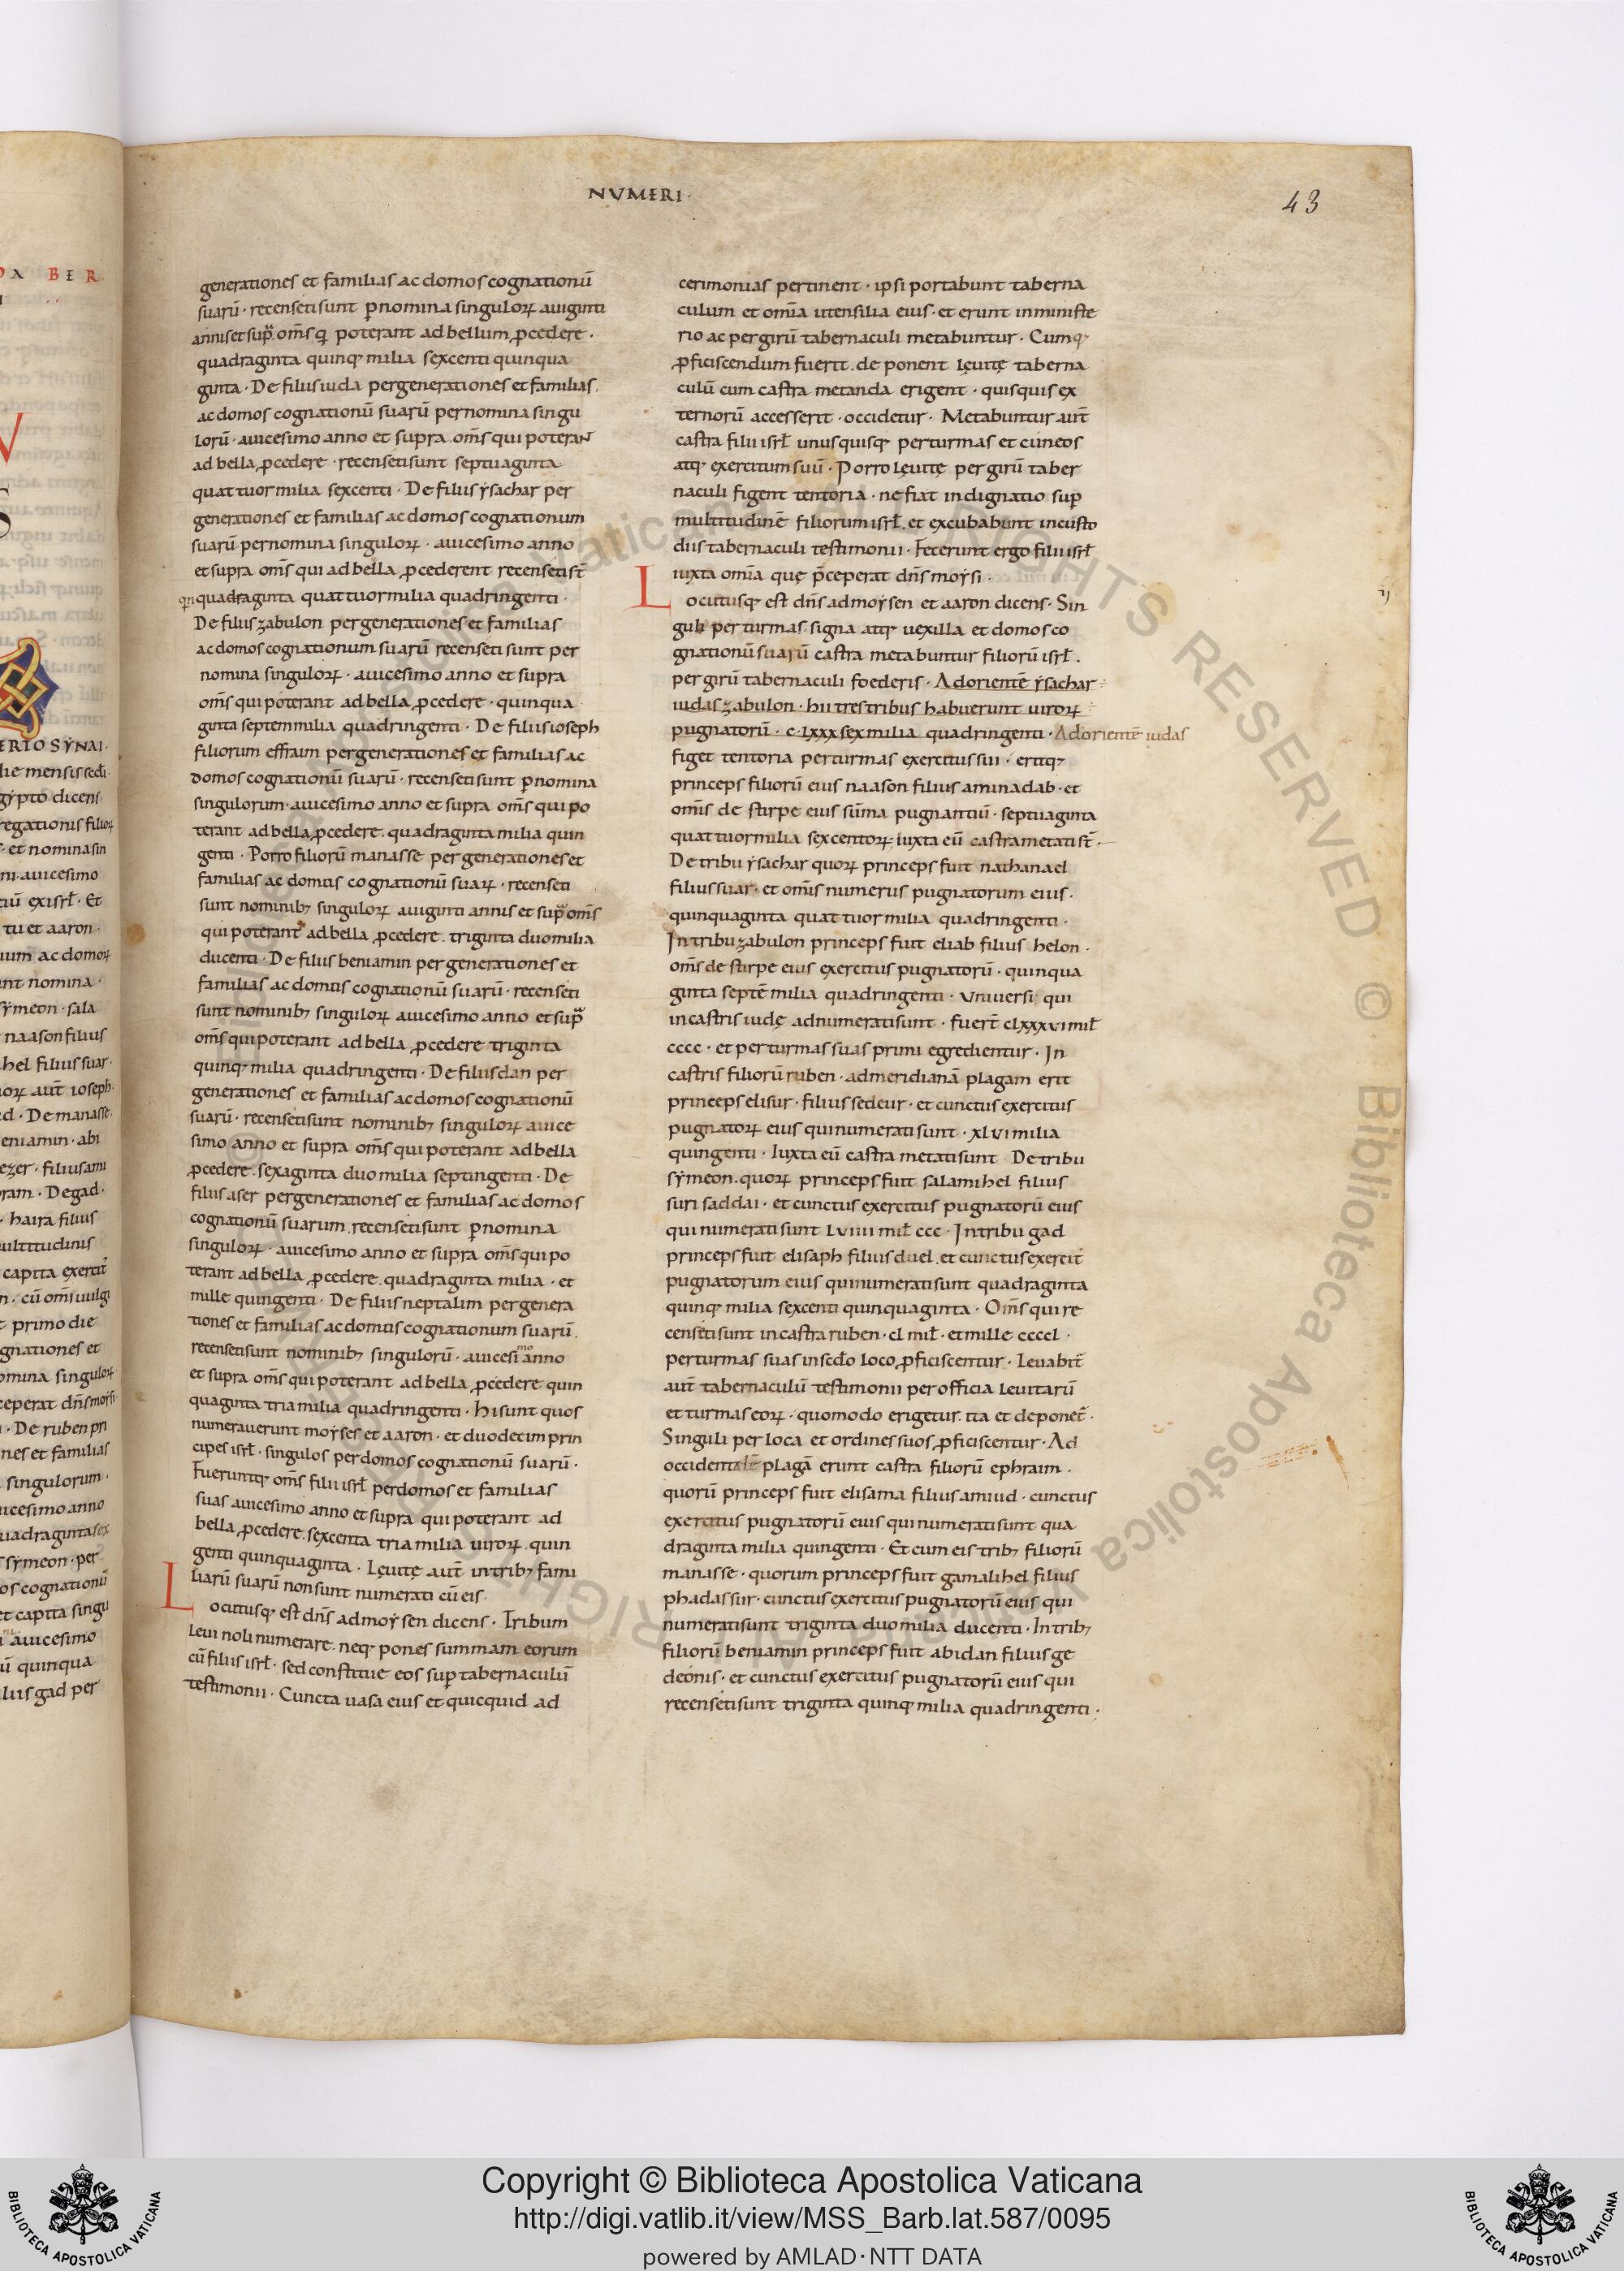 NVMERI·
43
generationes et familias ac domos cognationū
suarū· recensetisunt p̄nomina singuloꝝ auiginti
annisetsup̄ om̄s q̄ poterant adbellum ꝓcedere·
quadraginta quinqꝫ milia sexcenti quinqua
ginta· De filiis iuda pergenerationes et familias
ac domos cognationū suarū pernomina singu
lorū· auicesimo anno et supra om̄s qui poteraɴ
ad bella ꝓcedere· recensetisunt septuaginta
quattuor milia sexcenti· De filiis ẏsachar per
generationes et familias ac domos cognationum
suarū pernomina singuloꝝ· auicesimo anno
et supra om̄s qui ad bella ꝓcederent recenseti st̄
quadraginta quattuor milia quadringenti·
De filiis zabulon pergenerationes et familias
ac domos cognationum suarū recenseti sunt per
nomina singuloꝝ· auicesimo anno et supra
om̄s qui poterant ad bella ꝓcedere· quinqua
ginta septem milia quadringenti· De filiis ioseph
filiorum effraim pergenerationes et familias ac
domos cognationū suarū· recensetisunt p̄nomina
singulorum· auicesimo anno et supra om̄s qui po
terant ad bella ꝓcedere. quadraginta milia quin
genti· Porro filiorū manasse per generationes et
familias ac domus cognationū suaꝝ· recenseti
sunt nominibꝫ singuloꝝ auiginti annis et sup̄ om̄s
qui poterant ad bella ꝓcedere. triginta duo milia
ducenti· De filiis beniamin per generationes et
familias ac domus cognationū suarū· recenseti
sunt nominibꝫ singuloꝝ auicesimo anno et sup̄
om̄s qui poterant ad bella ꝓcedere triginta
quinqꝫ milia quadringenti· De filiis dan per
generationes et familias ac domos cognationū
suarū· recensetisunt nominibꝫ singuloꝝ auice
simo anno et supra om̄s qui poterant ad bella
ꝓcedere. sexaginta duo milia septingenti· De
filiis aser pergenerationes et familias ac domos
cognationū suarum. recensetisunt p̄nomina
singuloꝝ· auicesimo anno et supra om̄s qui po
terant ad bella ꝓcedere. quadraginta milia· et
mille quingenti· De filiis neptalim per genera
tiones et familias ac domus cognationum suarū.
recensetisunt nominibꝫ singulorū· auicesimo anno
et supra om̄s qui poterant ad bella ꝓcedere quin
quaginta tria milia quadringenti· Hi sunt quos
numerauerunt moẏses et aaron· et duodecim prin
cipes isrł· singulos per domos cognationū suarū·
Fueruntqꝫ om̄s filii isrł perdomos et familias
suas auicesimo anno et supra qui poterant ad
bella ꝓcedere. sexcenta tria milia uiroꝝ quin
genti quinquaginta· Leuitę aut̄ intribꝫ fami
liarū suarū non sunt numerati cū eis·
Locutusqꝫ est dn̄s ad moẏsen dicens· Tribum
leui noli numerare. neqꝫ pones summam eorum
cū filiis isrł· sed constitue eos sup̄ tabernaculū
testimonii· Cuncta uasa eius et quicquid ad
cerimonias pertinent· ipsi portabunt taberna
culum et om̄ia utensilia eius· et erunt inministe
rio ac per girū tabernaculi metabuntur· Cumqꝫ
ꝓficiscendum fuerit. de ponent leuitę taberna
culū cum castra metanda erigent· quisquis ex
ternorū accesserit· occidetur· Metabuntur aut̄
castra filii isrł unusquisqꝫ perturmas et cuneos
atqꝫ exercitum suū· Porro leuitę per girū taber
naculi figent tentoria· ne fiat indignatio sup̄
multitudinē filiorum isrł. et excubabunt incusto
diis tabernaculi testimonii· Fecerunt ergo filii isrł
iuxta om̄ia quę p̄ceperat dn̄s moẏsi·
Locutusqꝫ est dn̄s ad moẏsen et aaron dicens· Sin
guli per turmas signa atqꝫ uexilla et domos co
gnationū suarū castra metabuntur filiorū isrł·
per girū tabernaculi foederis· Adorientē ẏsachar
iudas zabulon· hii tres tribus habuerunt uiroꝝ
pugnatorū· c·lxxx sex milia quadringenti· Adorientē iudas
figet tentoria per turmas exercitus sui· eritqꝫ
princeps filiorū eius naason filius aminadab· et
om̄is de stirpe eius sūma pugnantiū· septuaginta
quattuor milia sexcentoꝝ iuxta eū castrametati st̄·
De tribu ẏsachar quoꝝ princeps fuit nathanael
filius suar· et omīs numerus pugnatorum eius·
quinquaginta quattuor milia quadringenti·
In tribu zabulon princeps fuit eliab filius helon·
om̄s de stirpe eius exercitus pugnatorū· quinqua
ginta septē milia quadringenti· Uniuersi qui
incastris iudę adnumeratisunt· fuert̄ clxxxvi mił
cccc· et per turmas suas primi egredientur· In
castris filiorū ruben· admeridianā plagam erit
princeps elisur· filius sedeur· et cunctus exercitus
pugnatoꝝ eius qui numerati sunt· xlvi milia
quingenti· Iuxta eū castra metati sunt De tribu
sẏmeon. quoꝝ princeps fuit salamihel filius
suri saddai· et cunctus exercitus pugnatorū eius
qui numerati sunt lviiii mił ccc· In tribu gad
princeps fuit elisaph filius duel. et cunctus exercit̄
pugnatorum eius qui numeratisunt quadraginta
quinqꝫ milia sexcenti quinquaginta· Om̄s qui re
censetisunt incastra ruben· cl mił· et mille ccccl·
perturmas suas insecd̄o loco ꝓficiscentur· Leuabit̄
aut̄ tabernaculū testimonii per officia leuitarū
et turmas eoꝝ· quomodo erigetur. ita et deponet̄·
Singuli per loca et ordines suos ꝓficiscentur· Ad
occidentalē plagā erunt castra filiorū ephraim·
quorū princeps fuit elisama filius amiud· cunctus
exercitus pugnatorū eius qui numeratisunt qua
draginta milia quingenti· Et cum eis tribꝫ filiorū
manasse· quorum princeps fuit gamalihel filius
phadassur· cunctus exercitus pugnatorū eius qui
numeratisunt triginta duo milia ducenti· In tribꝫ
filiorū beniamin princeps fuit abidan filius ge
deonis· et cunctus exercitus pugnatorū eius qui
recensetisunt triginta quinqꝫ milia quadringenti·
Copyright © Biblioteca Apostolica Vaticana
http://digi.vatlib.it/view/MSS_Barb.lat.587/0095
powered by AMLAD·NTT DATA
BIBLIOTECA APOSTOLICA VATICANA
BIBLIOTECA APOSTOLICA VATICANA